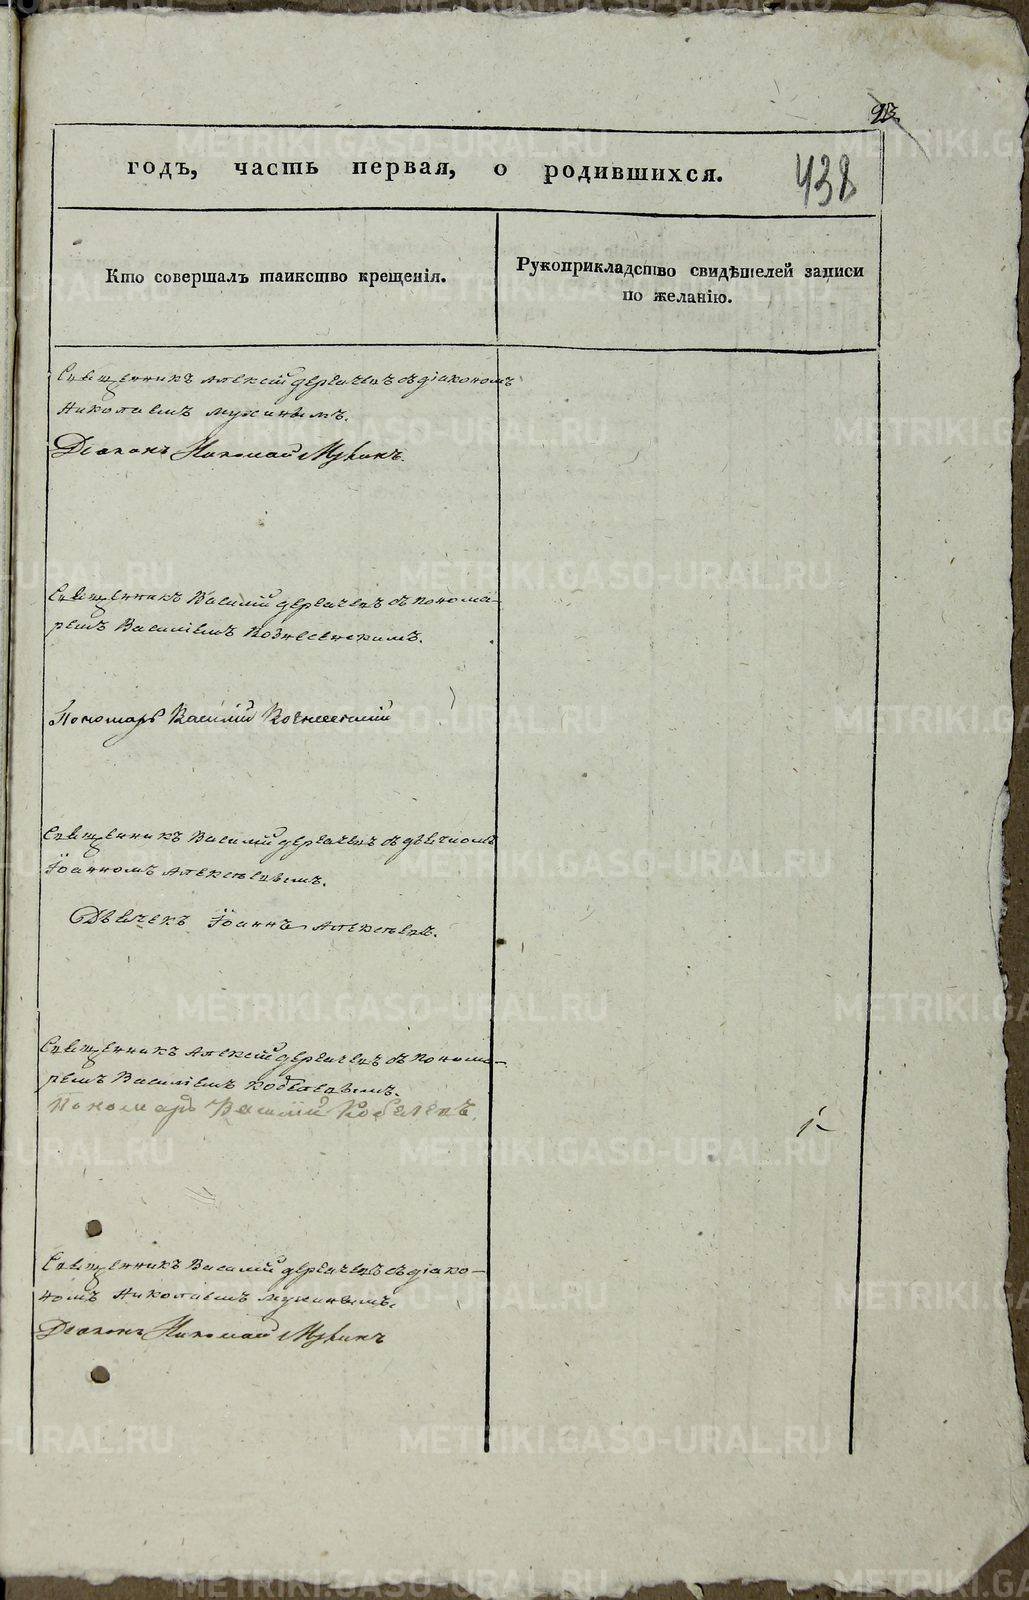 93.
годъ, часть первая, о родившихся. 438
Кто совершалъ таинство крещенія.
Рукоприкладство свидѣтелей записи
по желанію.
Священникъ Алексій Дерябинъ съ діакономъ
Николаемъ Мухинымъ.
Діаконъ Николай Мухинъ.
Священникъ Василій Дерябинъ съ понома-
ремъ Василіемъ Вознесенскимъ.
Пономарь Василій Вознесенскій
Священникъ Василій Дерябинъ съ дьячкомъ
Іоанномъ
Дьячекъ Іоаннъ
Священникъ Алексій Дерябинъ съ понома-
ремъ Василіемъ
Пономарь Василій
Священникъ Василій Дерябинъ съ діако-
номъ Николаемъ Мухинымъ.
Діаконъ Николай Мухинъ
METRIKI.GASO-URAL.RU